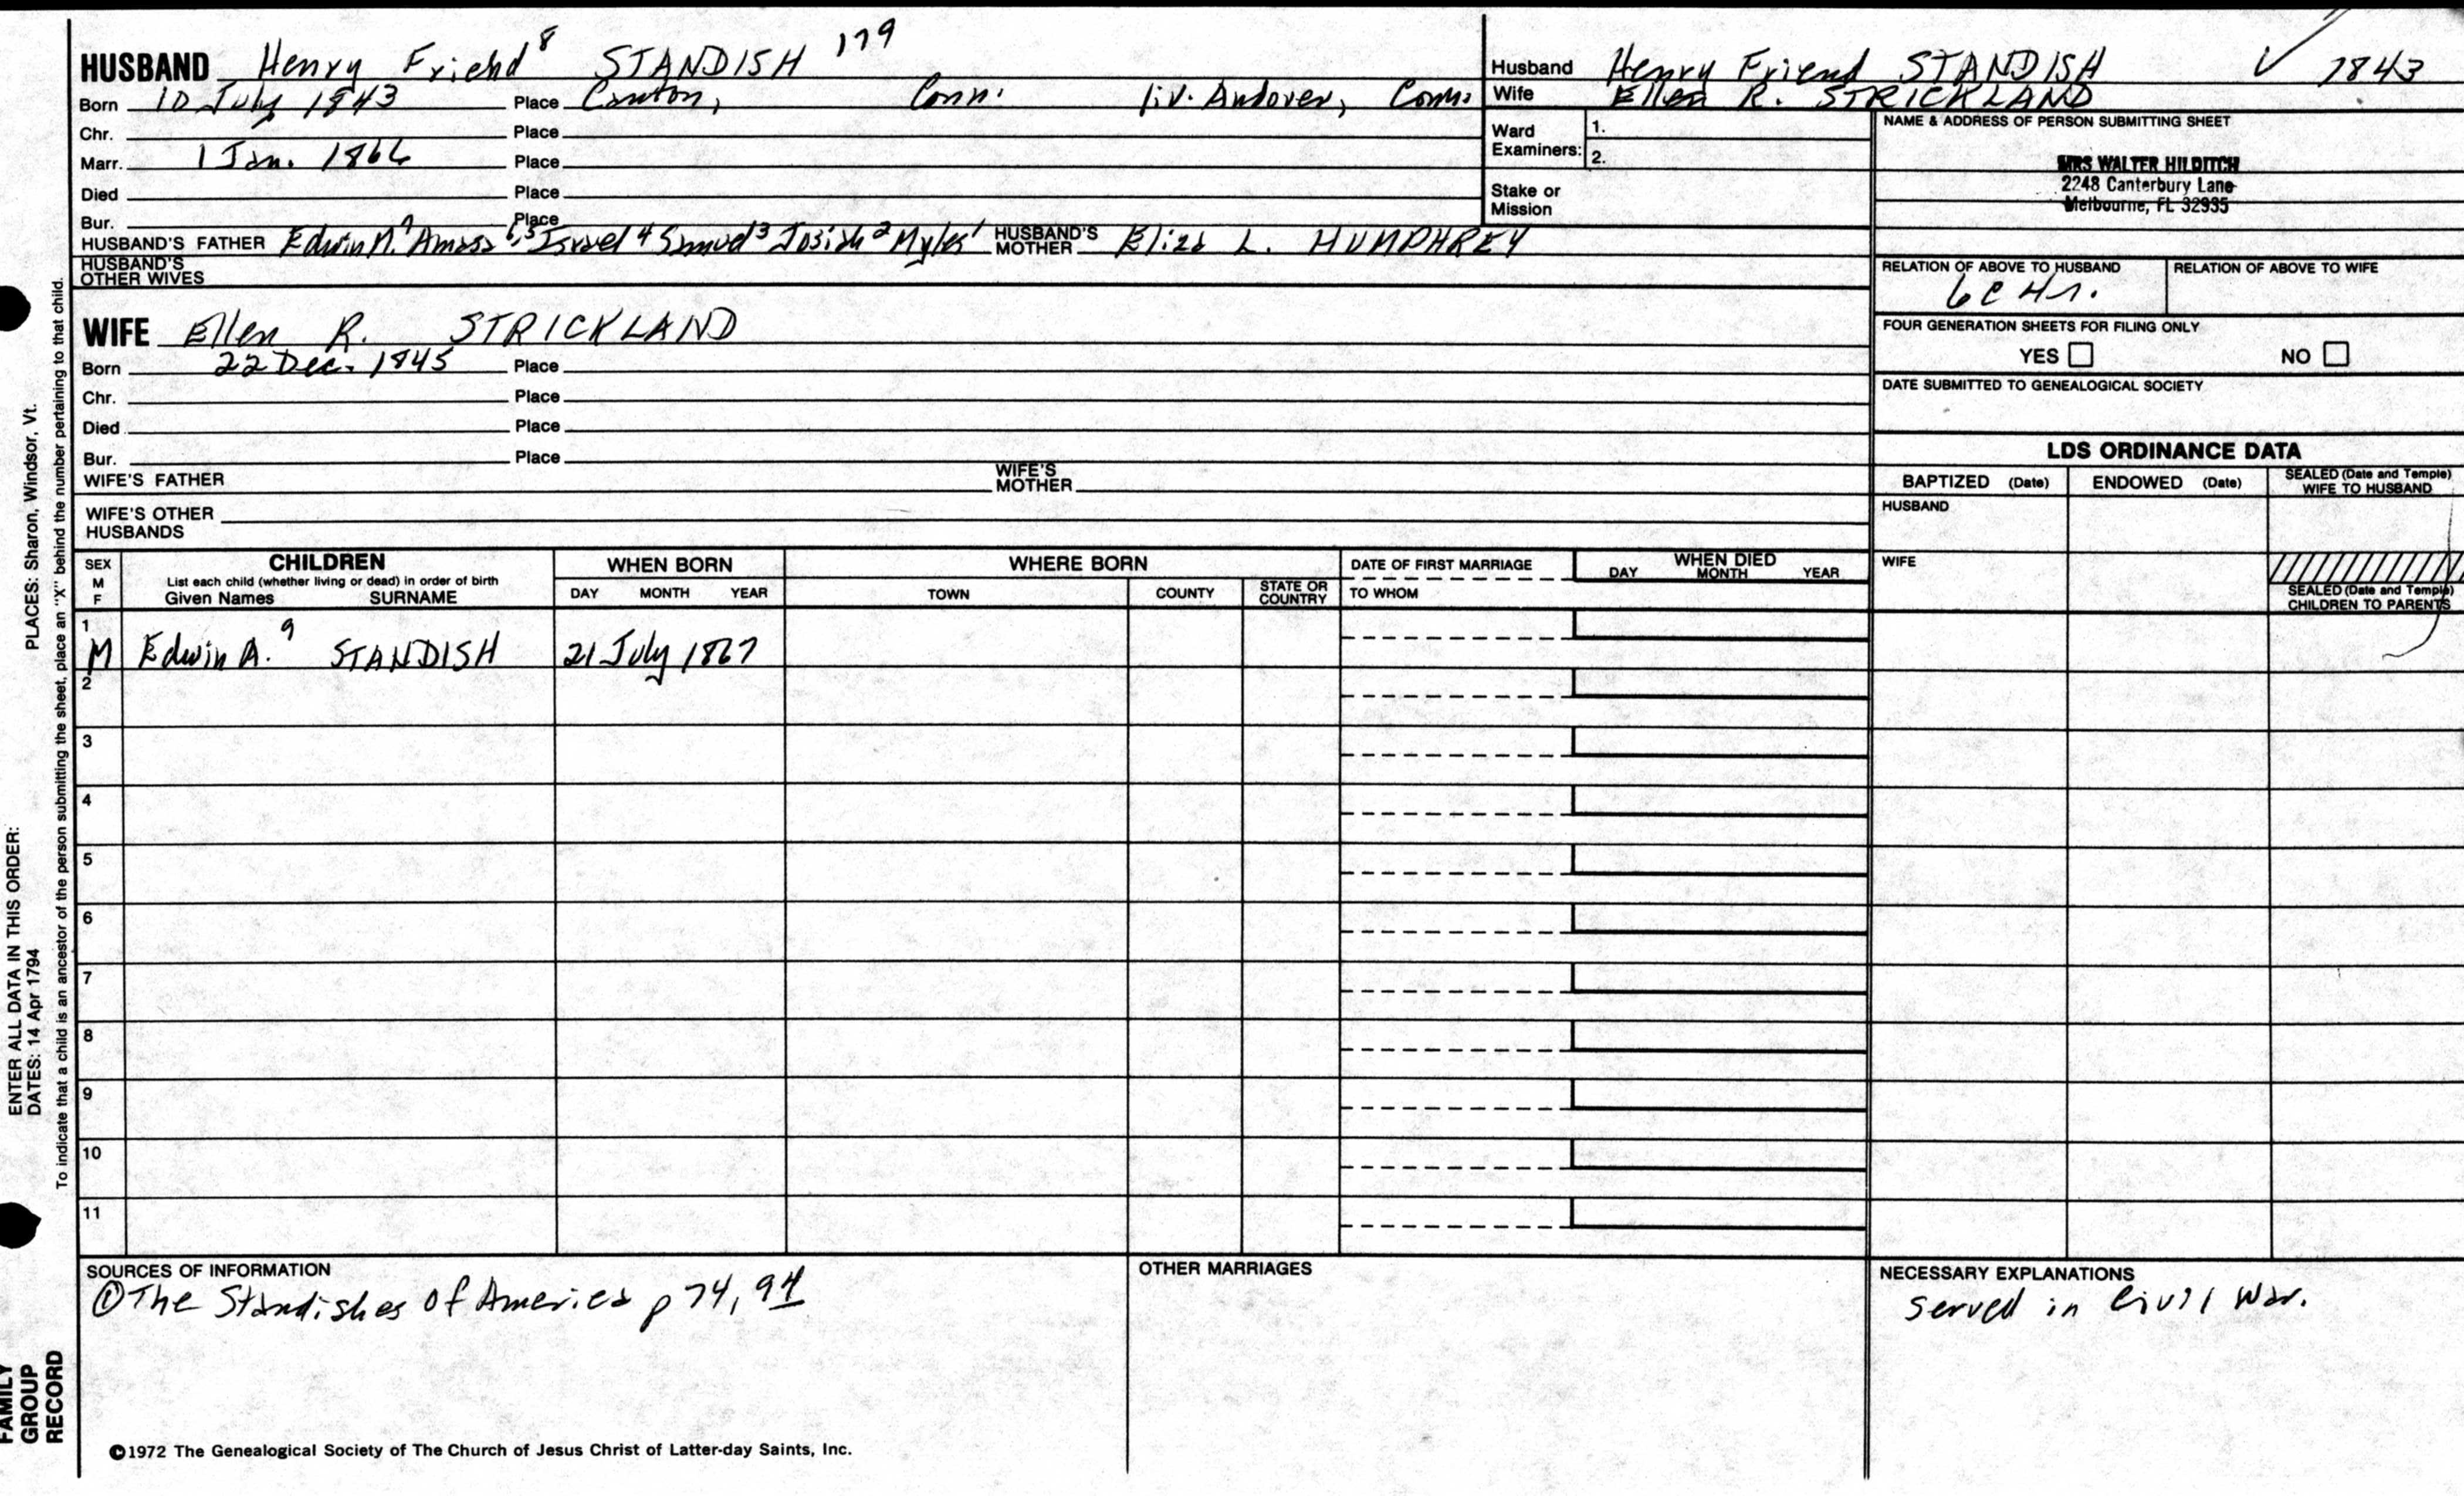 HUSBAND Henry Friend 8 STANDISH 179
Born 10 July 1843 Place Canton, Conn. liv. Andover, Conn.
Chr. Place
Marr. 1 Jan. 1866 Place
Died Place
Bur. Place
HUSBAND'S FATHER Edwin M. 7 Amasa 6,5 Israel 4 Samuel 3 Josiah 2 Myles 1 HUSBAND'S MOTHER Eliza L. HUMPHREY
HUSBAND'S OTHER WIVES
WIFE Ellen R. STRICKLAND
Born 22 Dec. 1845 Place
Chr. Place
Died Place
Bur. Place
WIFE'S FATHER WIFE'S MOTHER
WIFE'S OTHER HUSBANDS
Husband Henry Friend STANDISH 1843
Wife Ellen R. STRICKLAND
Ward Examiners: 1.
2.
Stake or Mission
NAME & ADDRESS OF PERSON SUBMITTING SHEET
MRS WALTER HILDITCH
2248 Canterbury Lane
Melbourne, FL 32935
RELATION OF ABOVE TO HUSBAND RELATION OF ABOVE TO WIFE
6C 4r.
FOUR GENERATION SHEETS FOR FILING ONLY
YES NO
DATE SUBMITTED TO GENEALOGICAL SOCIETY
LDS ORDINANCE DATA
BAPTIZED (Date) ENDOWED (Date) SEALED (Date and Temple) WIFE TO HUSBAND
HUSBAND
WIFE
SEALED (Date and Temple) CHILDREN TO PARENTS
SEX M F
CHILDREN
List each child (whether living or dead) in order of birth
Given Names SURNAME
WHEN BORN
DAY MONTH YEAR
WHERE BORN
TOWN COUNTY STATE OR COUNTRY
DATE OF FIRST MARRIAGE
TO WHOM
WHEN DIED
DAY MONTH YEAR
1
M Edwin A. 9 STANDISH 21 July 1867
2
3
4
5
6
7
8
9
10
11
SOURCES OF INFORMATION
① The Standishes of America p 74, 94
OTHER MARRIAGES
NECESSARY EXPLANATIONS
Served in Civil War.
©1972 The Genealogical Society of The Church of Jesus Christ of Latter-day Saints, Inc.
FAMILY GROUP RECORD
ENTER ALL DATA IN THIS ORDER:
DATES: 14 Apr 1794
PLACES: Sharon, Windsor, Vt.
To indicate that a child is an ancestor of the person submitting the sheet, place an "X" behind the number pertaining to that child.